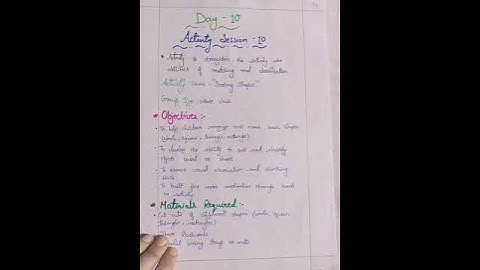 Day - 10
Activity Session - 10
Activity to strengthen the activity
abilities of matching and classification
Activity Name - "Sorting Shapes"
Group Size - whole class
* Objectives :-
- To help children recognize and name basic shapes
(circle, square, triangle, rectangle)
- To develop the ability to sort and classify
objects based on shape
- To enhance visual discrimination and thinking
skills
- To built fine motor coordination through hands
on activity
* Materials Required :-
- Cut-outs of different shapes (circle, square,
triangle, rectangle)
Shape Flashcards
sorting trays or mats